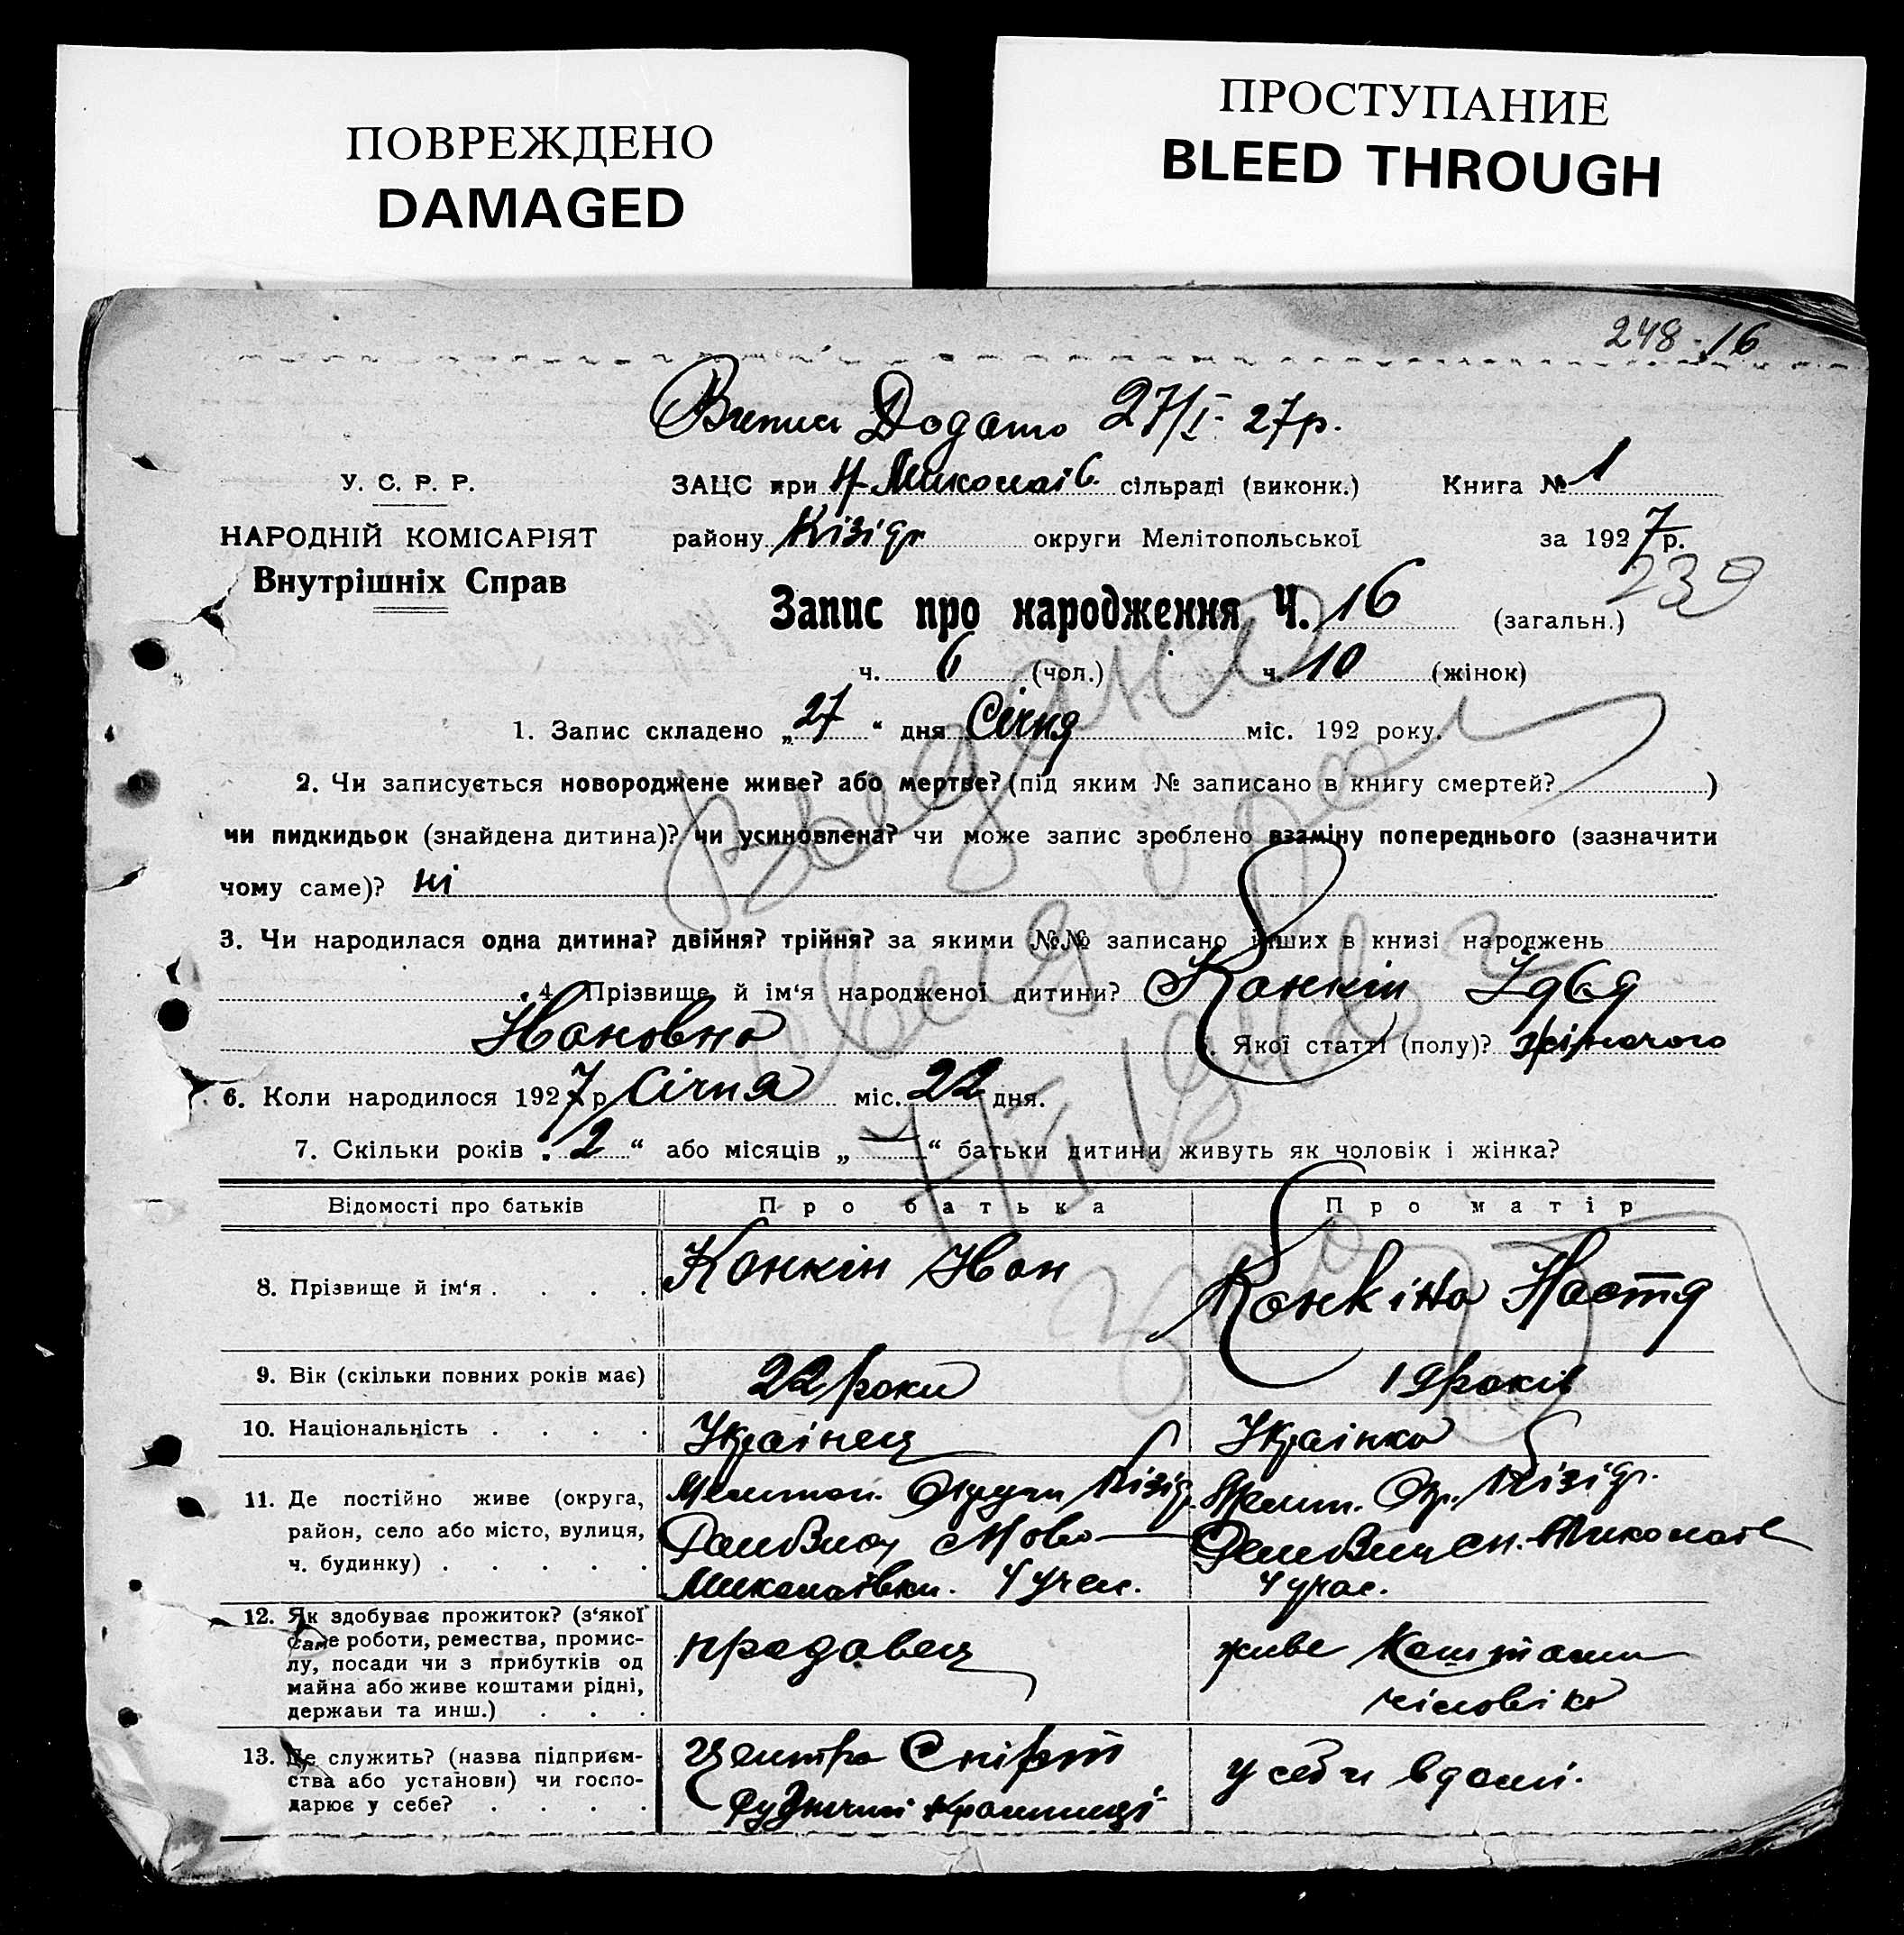 ПОВРЕЖДЕНО
DAMAGED
ПРОСТУПАНИЕ
BLEED THROUGH
248-16
Додано 27/I- 27р.
У. С. Р. Р.
НАРОДНІЙ КОМІСАРІЯТ
Внутрішніх Справ
ЗАЦС при Н-Миколаів. сільраді (виконк.) Книга № 1
району Кізідр округи Мелітопольської за 1927 р.
239
Запис про народження Ч. 16 (загальн.)
ч. 6 (чол.) ч. 10 (жінок)
1. Запис складено „27“ дня Січня міс. 192 року.
2. Чи записується новороджене живе? або мертве? (під яким № записано в книгу смертей? )
чи пидкидьок (знайдена дитина)? чи усиновлена? чи може запис зроблено взаміну попереднього (зазначити
чому саме)? ні
3. Чи народилася одна дитина? двійня? трійня? за якими №№ записано інших в книзі народжень
4. Прізвище й ім‘я народженої дитини? Конкін
Ивановна Якої статті (полу)? жіночого
6. Коли народилося 1927 р Січня міс. 22 дня.
7. Скільки років „2“ або місяців „—“ батьки дитини живуть як чоловік і жінка?
Відомості про батьків Про батька Про матір
8. Прізвище й ім‘я . . . . Конкін Иван Конкіна Настя
9. Вік (скільки повних років має) 22 роки 19 років
10. Національність . . . . Українец Українка
11. Де постійно живе (округа, район, село або місто, вулиця, ч. будинку) . . . . . Мелитоп. Округи Кізідр. Ново- Миколаівки. 4 учас. Мелит. Окр. Кізідр. 4 учас.
12. Як здобуває прожиток? (з‘якої саме роботи, ремества, промислу, посади чи з прибутків од майна або живе коштами рідні, держави та инш.) . . . продавец живе Коштами чіловіка
13. Де служить? (назва підприємства або установи) чи господарює у себе? . . . . Центро Спірт у себя вдомі.